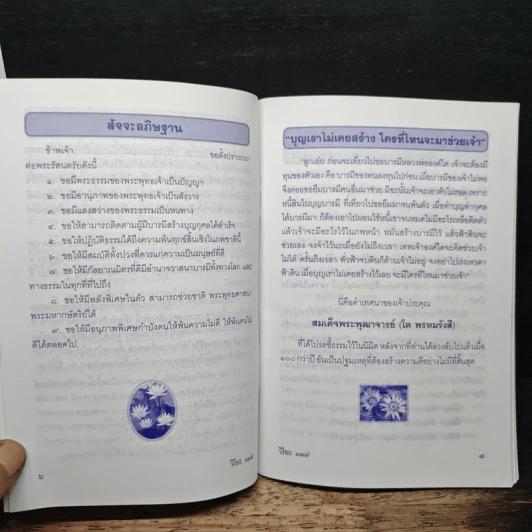 สัจจะอภิษฐาน
ข้าพเจ้า ขอตั้งปรารถนา
ต่อพระรัตนตรัยดังนี้
๑. ขอมีพระธรรมของพระพุทธเจ้าเป็นปัญญา
๒. ขอมีอานุภาพของพระพุทธเจ้าเป็นสังวาง
๓. ขอมีแสงสว่างของพระธรรมเป็นหนทาง
๔. ขอให้สามารถติดตามผู้มีบารมีสร้างบุญกุศลได้สำเร็จ
๕. ขอให้ปฏิบัติธรรมได้ถึงความพ้นทุกข์สิ้นเชิงในภพชาตินี้
๖. ขอให้มีสมบัติทั้งปวงที่ควรแก่ความเป็นมนุษย์ที่ดี
๗. ขอให้มีกัลยาณมิตรที่ดีมีอำนาจวาสนาบารมีทั้งทางโลก และ
ทางธรรมในทุกที่ที่ไปถึง
๘. ขอให้มีพลังพิเศษในตัว สามารถช่วยชาติ พระพุทธศาสนา
พระมหากษัตริย์ได้
๙. ขอให้มีอานุภาพพิเศษกำบังตนให้พ้นความไม่ดี ให้พ้นคนไม่
ดีได้ตลอดไป.
๖
วิริยะ ๑๑๙
"บุญเราไม่เคยสร้าง ใครที่ไหนจะมาช่วยเจ้า"
"ลูกเอ๋ย ก่อนจะเที่ยวไปขอบารมีหลวงพ่อองค์ใด เจ้าจะต้องมี
ทุนของตัวเอง คือ บารมีของตนลงทุนไปก่อน เมื่อบารมีของเจ้าไม่พอ
จึงค่อยขอยืมบารมีคนอื่นมาช่วย มิฉะนั้นเจ้าจะเอาตัวไม่รอด เพราะ
หนี้สินในบุญบารมี ที่เที่ยวไปขอยืมมาจนพ้นตัว เมื่อทำบุญทำกุศล
ได้บารมีมา ก็ต้องเอาไปผ่อนใช้หนี้เขาจนหมดไม่มีอะไรเหลือติดตัว
แล้วเจ้าจะมีอะไรไว้ในภพหน้า หมั่นสร้างบารมีไว้ แล้วฟ้าดินจะ
ช่วยเอง จงจำไว้นะเมื่อยังไม่ถึงเวลา เทพเจ้าองค์ใดจะคิดช่วยเจ้า
ไม่ได้ ครั้นถึงเวลา ทั่วฟ้าจบดินก็ต้านเจ้าไม่อยู่ จงอย่าไปเร่งเทวดา
ฟ้าดิน เมื่อบุญเราไม่เคยสร้างไว้เลย จะมีใครที่ไหนมาช่วยเจ้า"
นี่คือคำเทศนาของเจ้าประคุณ
สมเด็จพระพุฒาจารย์ (โต พรหมรังสี)
ที่ได้โปรดชี้ธรรมไว้ในนิมิต หลังจากที่ท่านได้ล่วงลับไปแล้วเมื่อ
๑๐๐ กว่าปี อันเป็นปฐมเหตุที่ต้องสร้างความดีอย่างไม่มีที่สิ้นสุด
วิริยะ ๑๑๙
๗